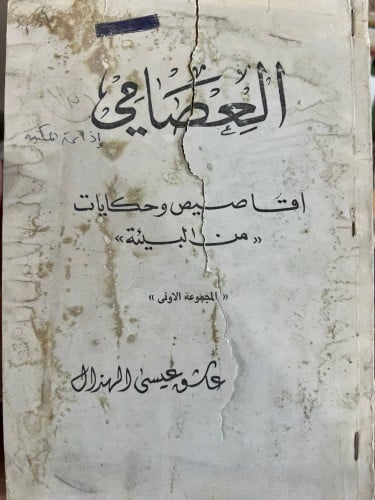 العِصَامِي
اقاصيص وحكايات
«من البيئة»
« المجموعة الاولى »
عاشق عيسى الهذال